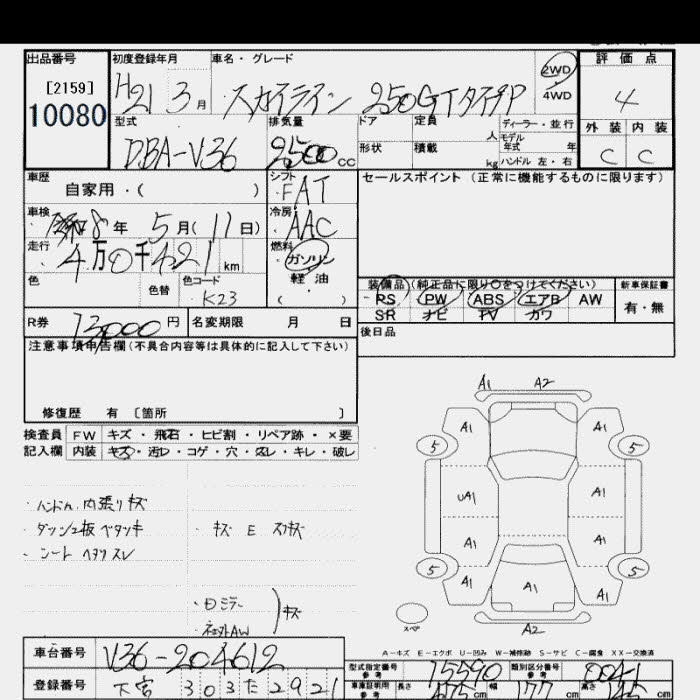 出品番号 初度登録年月 車名・グレード 2WD 評価点
[2159] H21 3月 スカイライン 250GTタイプP 4WD 4
10080
型式 排気量 ドア 定員 人 ディーラー・並行 外装 内装
DBA-V36 2500cc 形状 積載 kg モデル年式 年 C C
ハンドル 左・右
車歴 シフト セールスポイント (正常に機能するものに限ります)
自家用・( ) FAT
車検 令和8年 5月(11日) 冷房 AAC
走行 4万0千421km 燃料 ガソリン
色 色替 色コード 軽油
K23 ( )
装備品(純正品に限り○をつけてください) 新車保証書
PS PW ABS エアB AW 有・無
SR ナビ TV カワ
R券 13,000円 名変期限 月 日 後日品
注意事項申告欄(不具合内容等は具体的に記入して下さい)
修復歴 有 [箇所 ]
検査員 FW キズ・飛石・ヒビ割・リペア跡・×要
記入欄 内装 キズ・汚レ・コゲ・穴・スレ・キレ・破レ
・ハンドル 内張りキズ
・ダッシュ板 ベタツキ ・キズ E スリキズ
・シート ヘタリ スレ
・Dミラー
・ネオAW )キズ
A1 A2
A1 A1
5 5
UA1 A1
A1 A1
5 5
A1 A1 A1
スペア
A2
A-キズ E-エクボ U-凹み W-補修跡 S-サビ C-腐食 XX-交換済
車台番号 V36-204612
登録番号 大宮 303 た 2921
型式指定番号 参考 15590 類別区分番号 参考 0041
車庫証明用 参考 長さ 475cm 幅 177cm 高さ 145cm